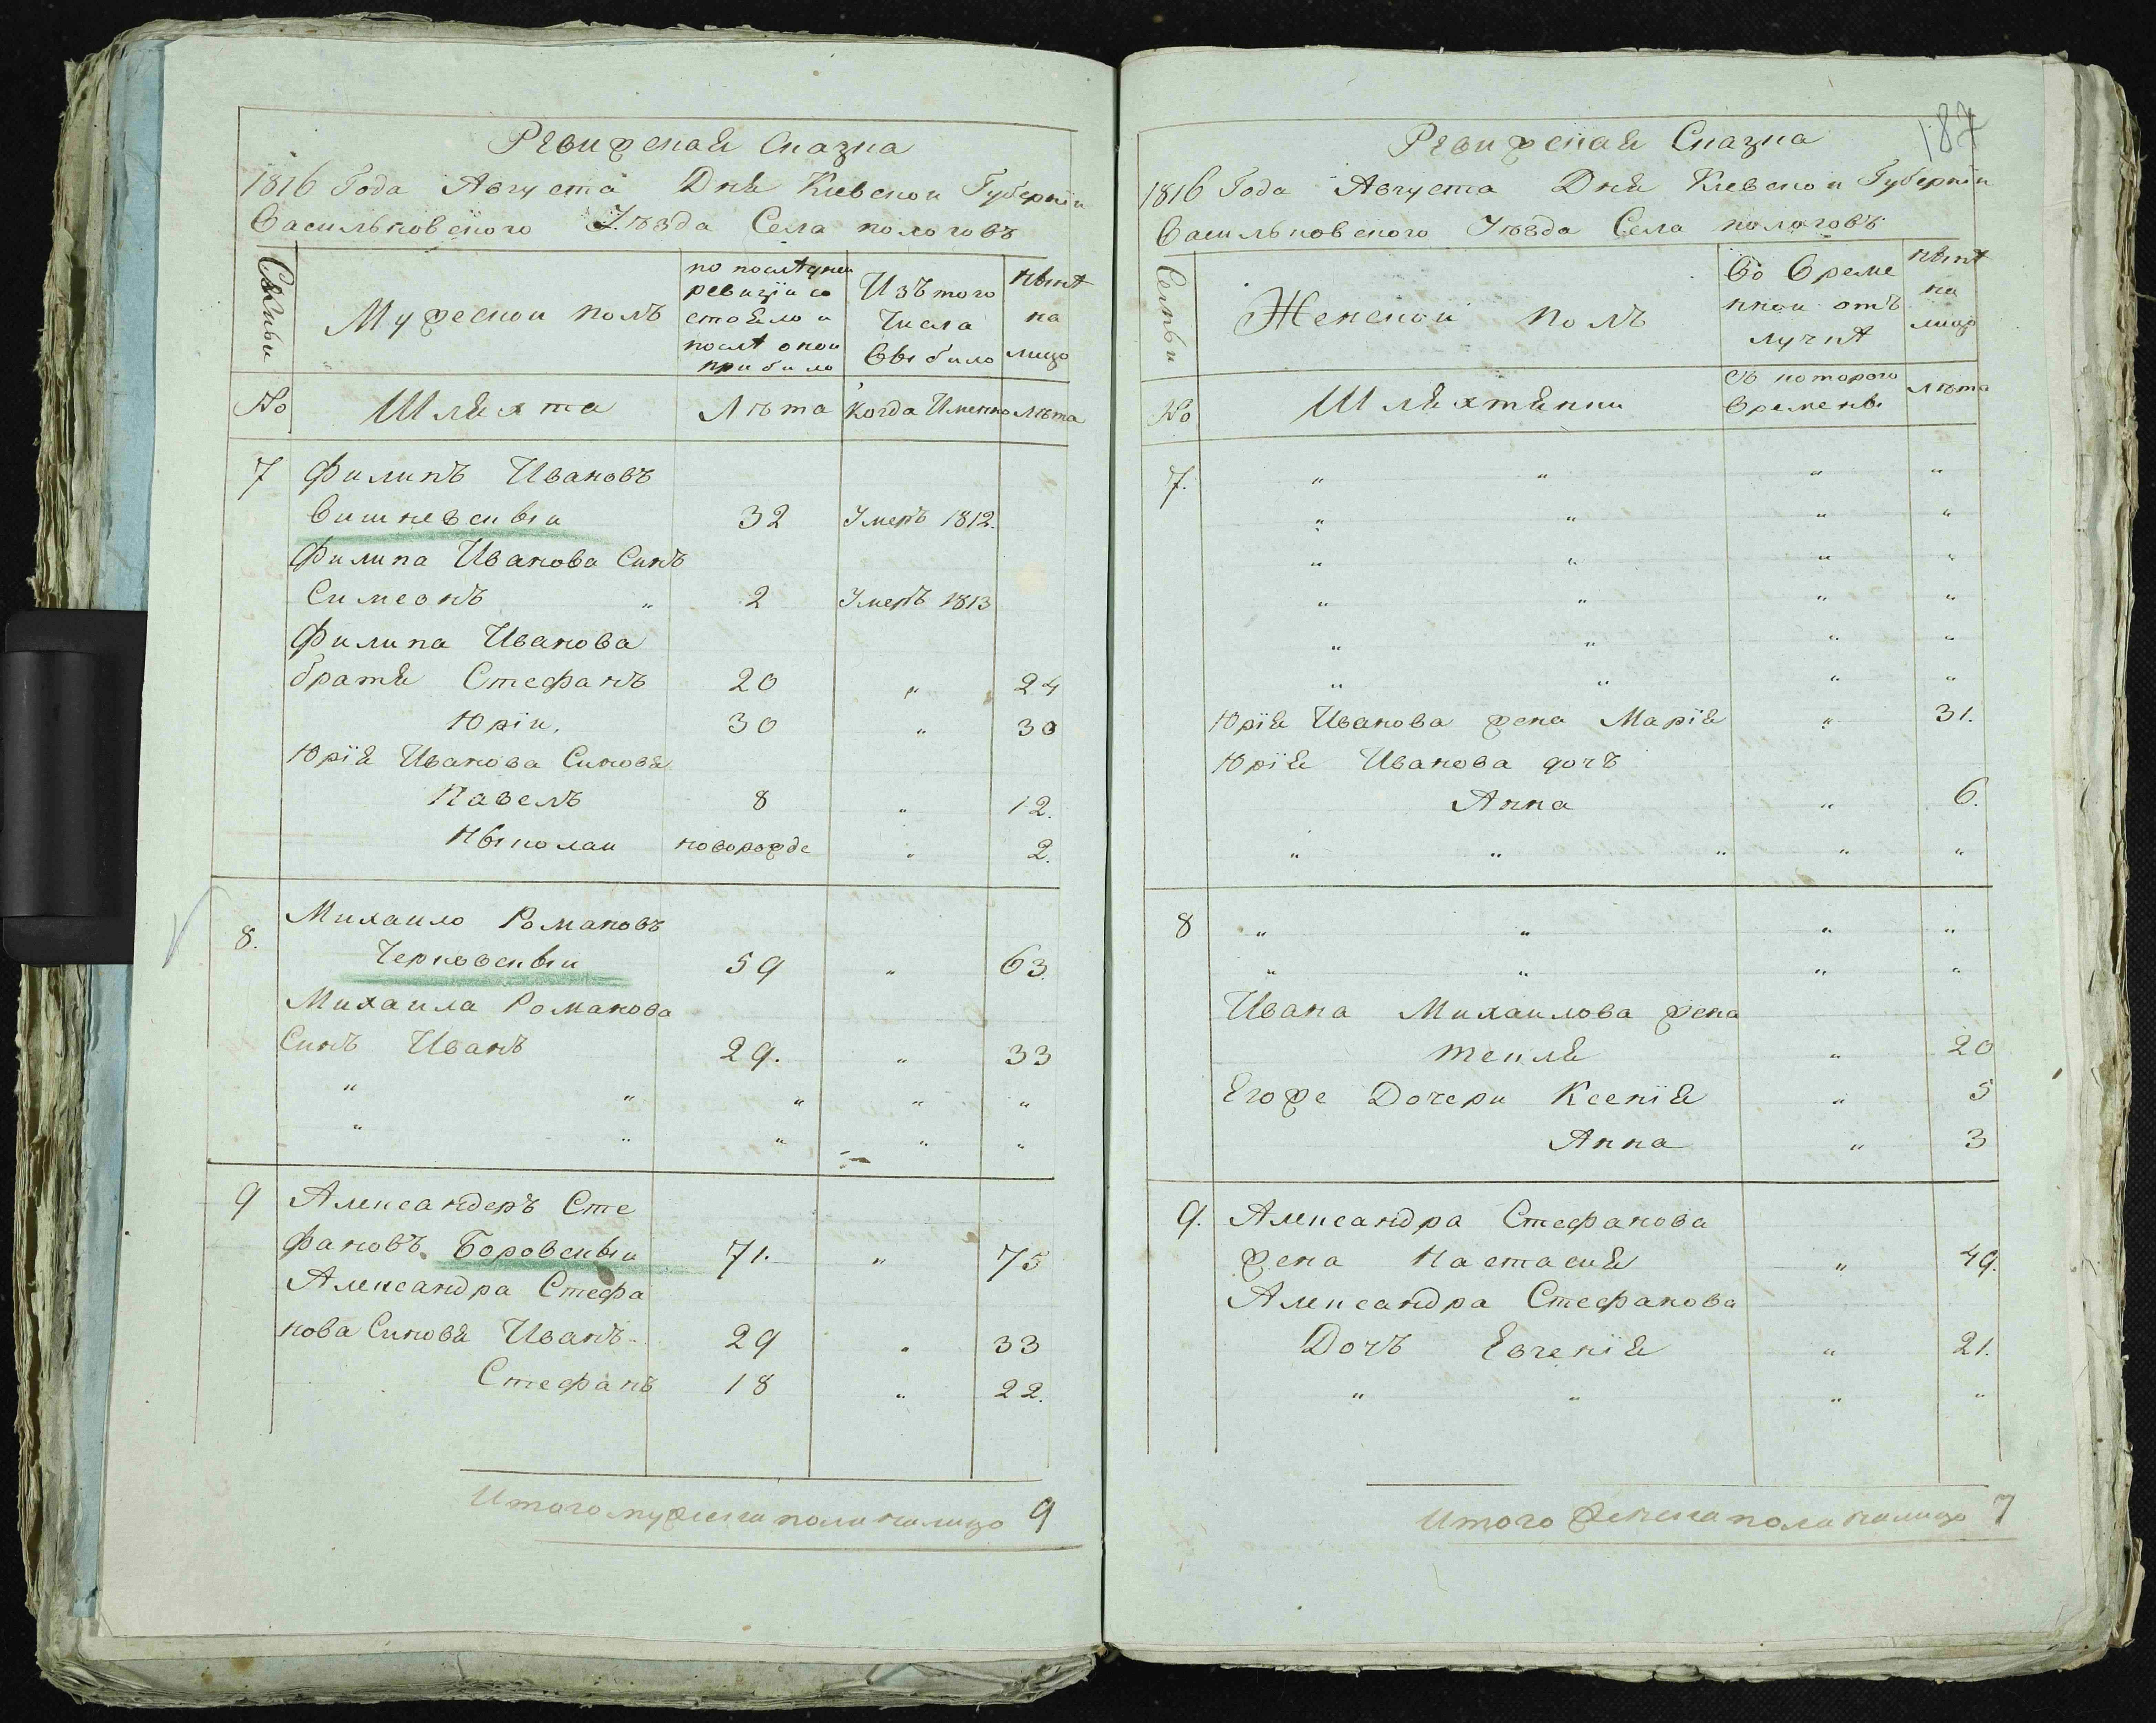 Ревижская Сказка
1816 Года Августа Дня Киевскои Губернiи
Васильковского Уѣзда Села пологовъ
Семьи
Мужескои полъ
по послѣднеи
ревизiи со
стояло и
послѣ онои
прибило
Изъ того
Числа
Выбило
Нынѣ
на
лицо
No
Шляхта
Лѣта
Когда Именно
Лѣта
7 Филипъ Ивановъ
Вишневскыи 32 Умеръ 1812.
Филипа Иванова Синъ
Симеонъ " 2 Умеръ 1813
Филипа Иванова
братя Стефанъ 20 " 24
Юрiи. 30 " 30
Юрiя Иванова Синовя
Павелъ 8 " 12.
Ныколаи новорожде " 2.
Михаило Романовъ
8. Черновскыи 59 " 63.
Михаила Романова
Синъ Иванъ 29. " 33
" " " " "
" " " " "
9 Александеръ Сте
фановъ Боровскыи 71. " 75
Александра Стефа
нова Синовя Иванъ 29 " 33
Стефанъ 18 " 22.
Итого мужеска пола налицо 9
187
Ревижская Сказка
1816 Года Августа Дня Киевскои Губернiи
Васильковского Уѣзда Села пологовъ
Семьи
Женскои полъ
Во Време
ннои отъ
лучкѣ
Нынѣ
на
лицо
No
Шляхтянки
съ которого
Времены
Лѣта
7. " " " "
" " " "
" " " "
" " " "
" " " "
" " " "
Юрiя Иванова жена Марiя " 31.
Юрiя Иванова дочъ
Анна " 6.
" " " " "
8 " " " "
" " " "
Ивана Михаилова жена
Текля " 20
Егоже Дочери Ксенiя " 5
Анна " 3
9. Александра Стефанова
жена Настасия " 49.
Александра Стефанова
Дочъ Евгенiя " 21.
" " " "
Итого Женска пола налицо 7